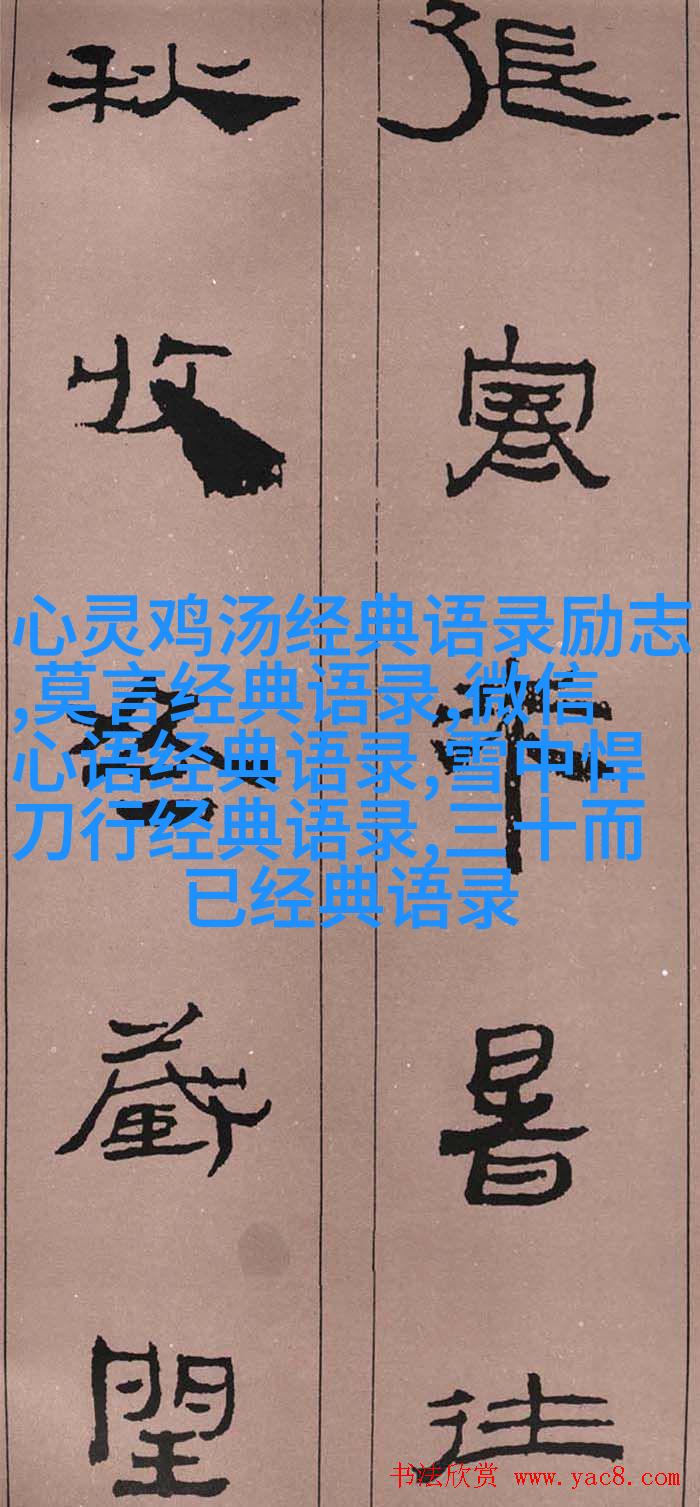 張寒來暑往
秋收冬藏閏
心灵鸡汤经典语录励志
,莫言经典语录,微信
心语经典语录,雪中悍
刀行经典语录,三十而
已经典语录
书法欣赏 www.yac8.com